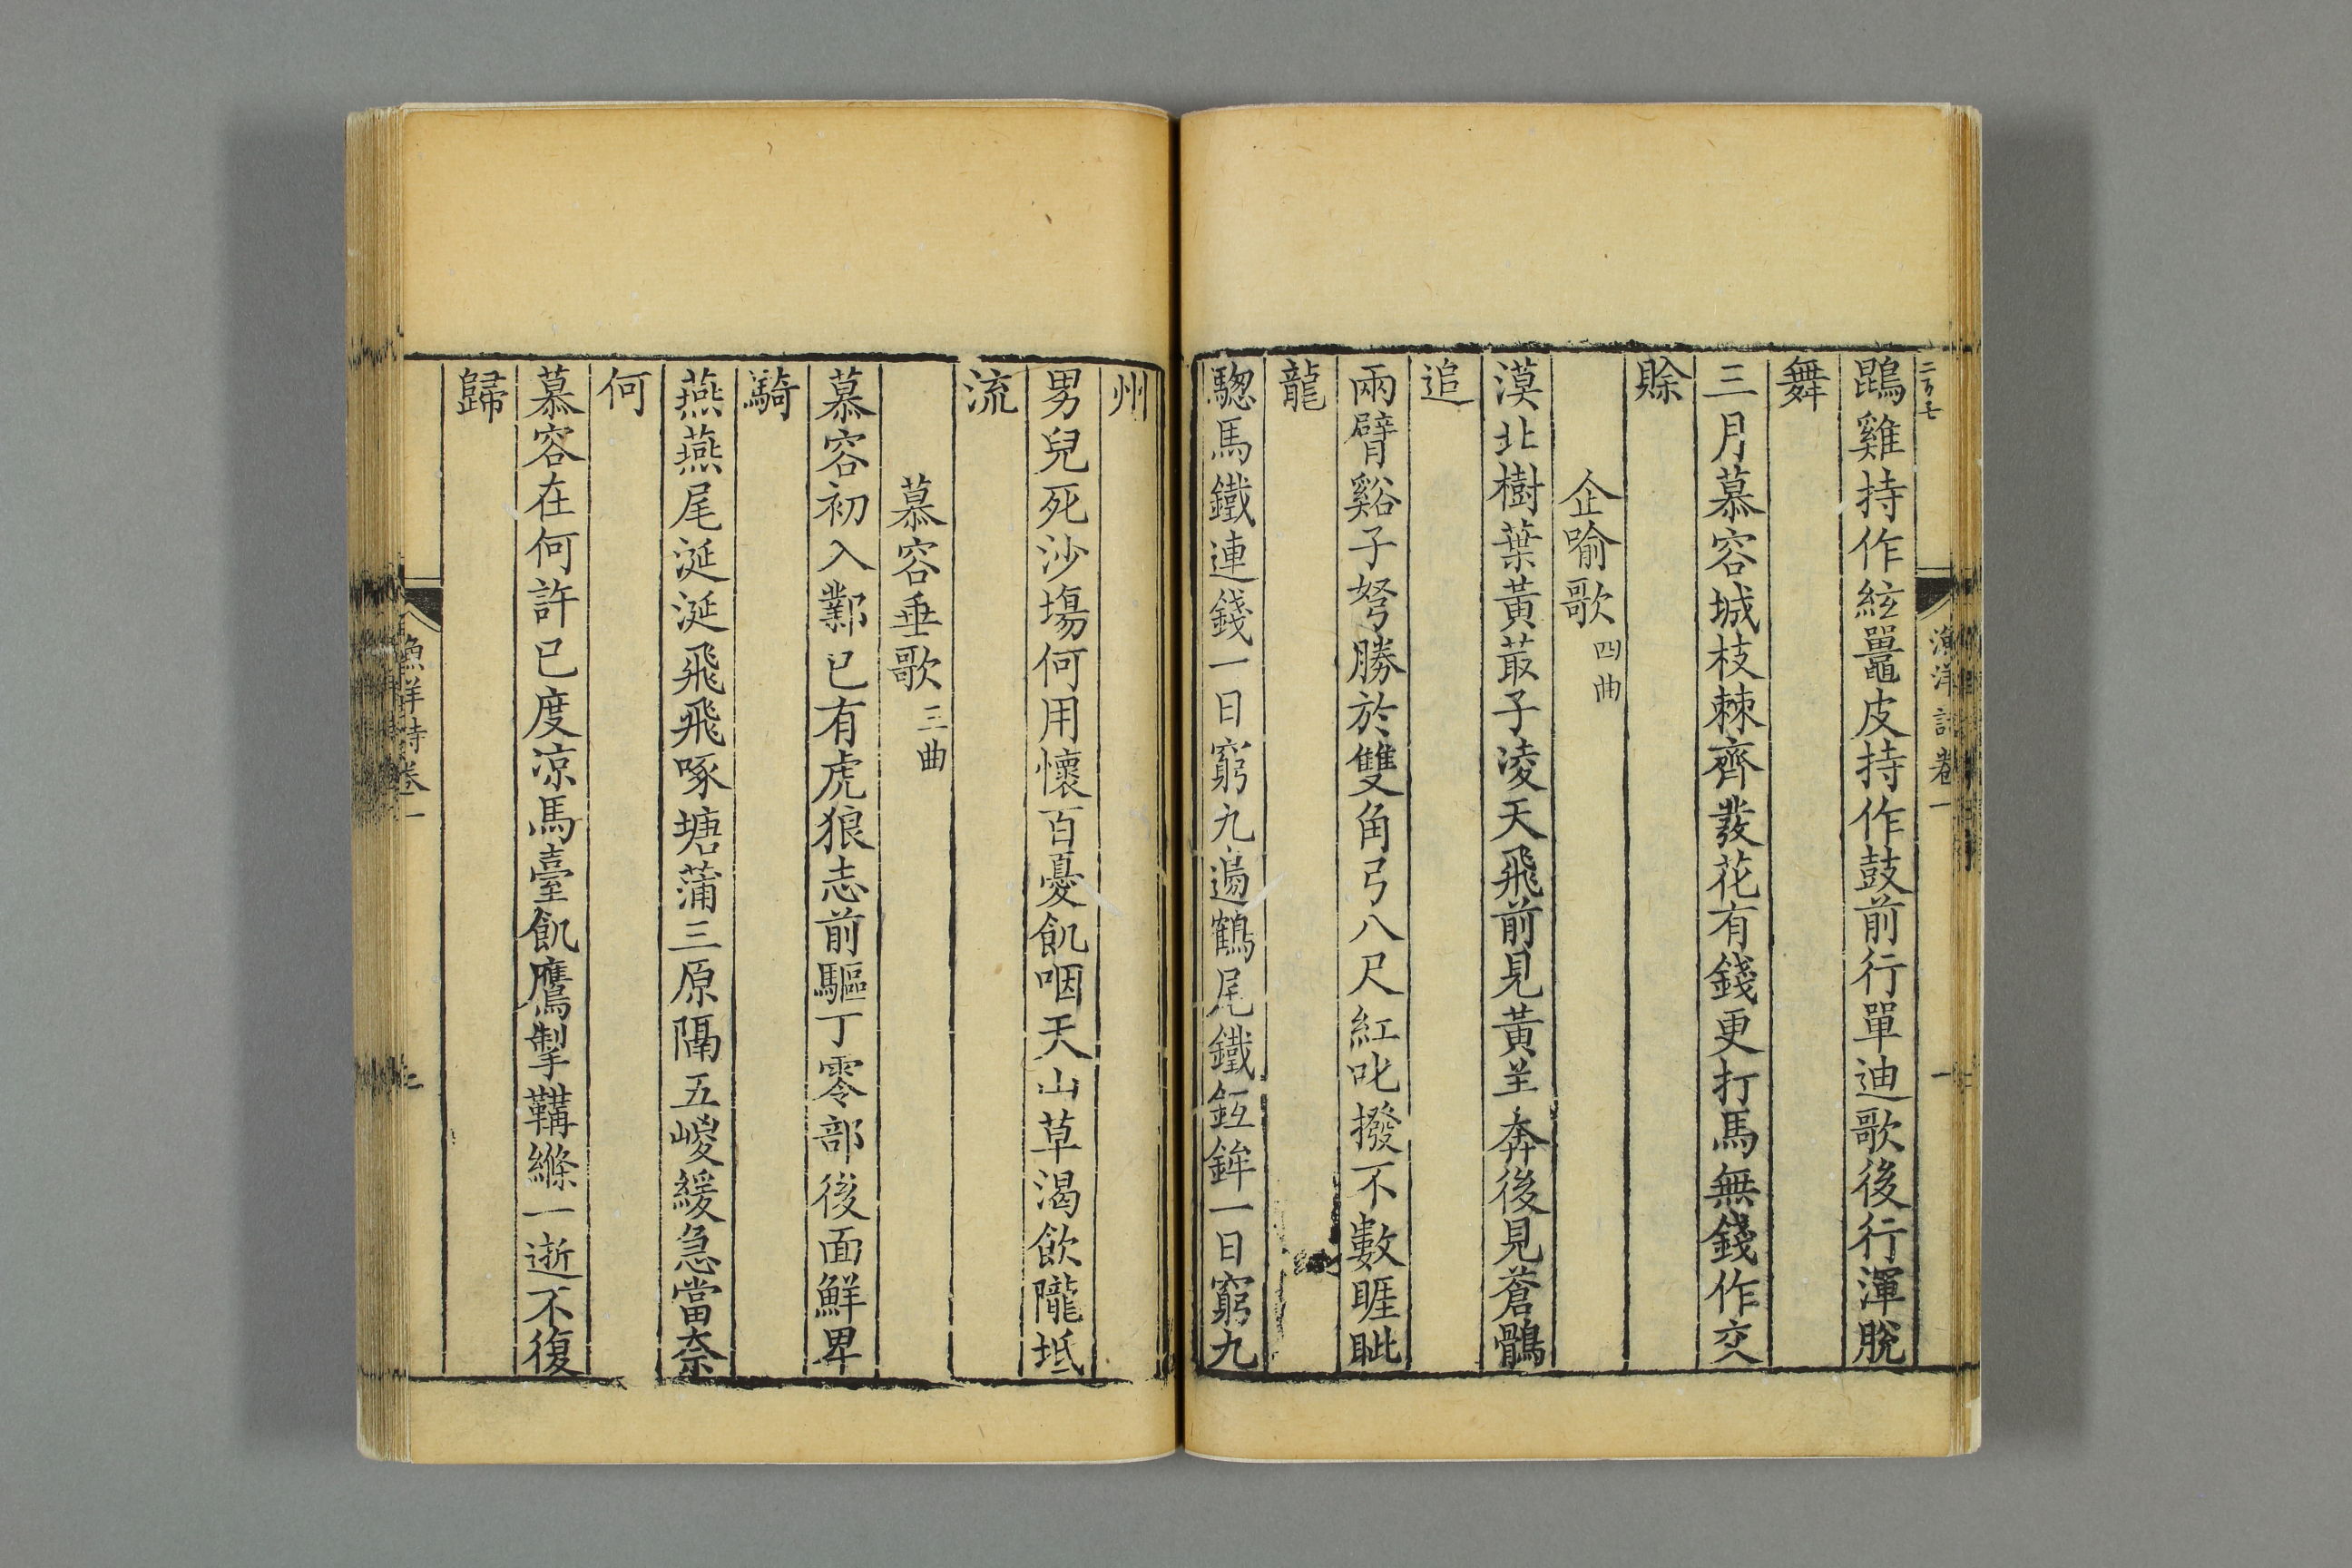 鵾雞持作絃鼉皮持作鼓前行單迪歌後行渾脫
舞
三月慕容城枝棘齊發花有錢更打馬無錢作交
賖
企喻歌四曲
漠北樹葉黃菆子凌天飛前見黃羊奔後見蒼鶻
追
兩臂谿子弩勝於雙角弓八尺紅叱撥不數睚眦
龍
驄馬鐵連錢一日窮九邊鶴尾鐵鉅鉾一日窮九
州
男兒死沙塲何用懷百憂飢咽天山草渴飲隴坻
流
慕容垂歌三曲
慕容初入鄴已有虎狼志前驅丁零部後面鮮卑
騎
燕燕尾涎涎飛飛啄塘蒲三原隔五㟅緩急當奈
何
慕容在何許已度凉馬臺飢鷹掣鞲絛一逝不復
歸
漁洋詩卷一
一
漁洋詩卷一